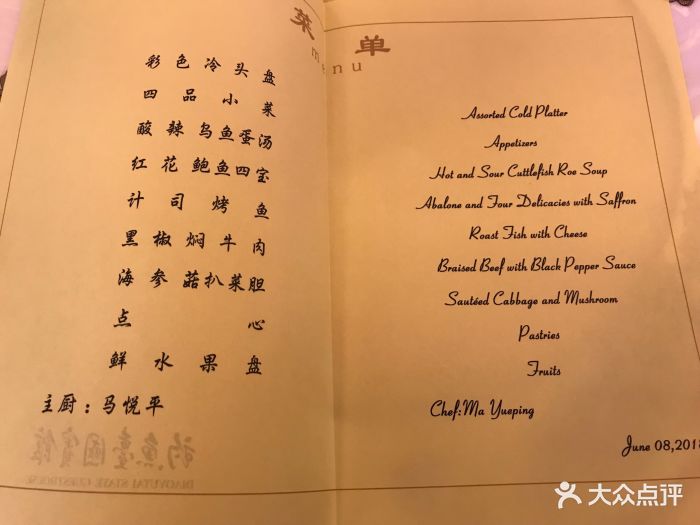 菜单
menu
彩色冷头盘
四品小菜
酸辣乌鱼蛋汤
红花鲍鱼四宝
计司烤鱼
黑椒焖牛肉
海参菇扒菜胆
点心
鲜水果盘
主厨：马悦平
钓鱼台國賓館
DIAOYUTAI STATE GUESTHOUSE
Assorted Cold Platter
Appetizers
Hot and Sour Cuttlefish Roe Soup
Abalone and Four Delicacies with Saffron
Roast Fish with Cheese
Braised Beef with Black Pepper Sauce
Sautéed Cabbage and Mushroom
Pastries
Fruits
Chef:Ma Yueping
June 08,2018
大众点评